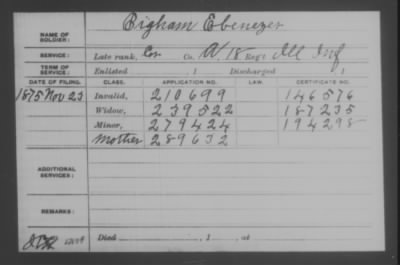 NAME OF SOLDIER: Bigham Ebenezer
SERVICE: Late rank, Cor Co. A, 18 Reg't Ill Inf
TERM OF SERVICE: Enlisted , 1 Discharged , 1
DATE OF FILING. CLASS. APPLICATION NO. LAW. CERTIFICATE NO.
1875 Nov 23 Invalid, 210699 146576
Widow, 239522 187235
Minor, 279424 194298
Mother 289632
ADDITIONAL SERVICES:
REMARKS:
Died , 1 , at